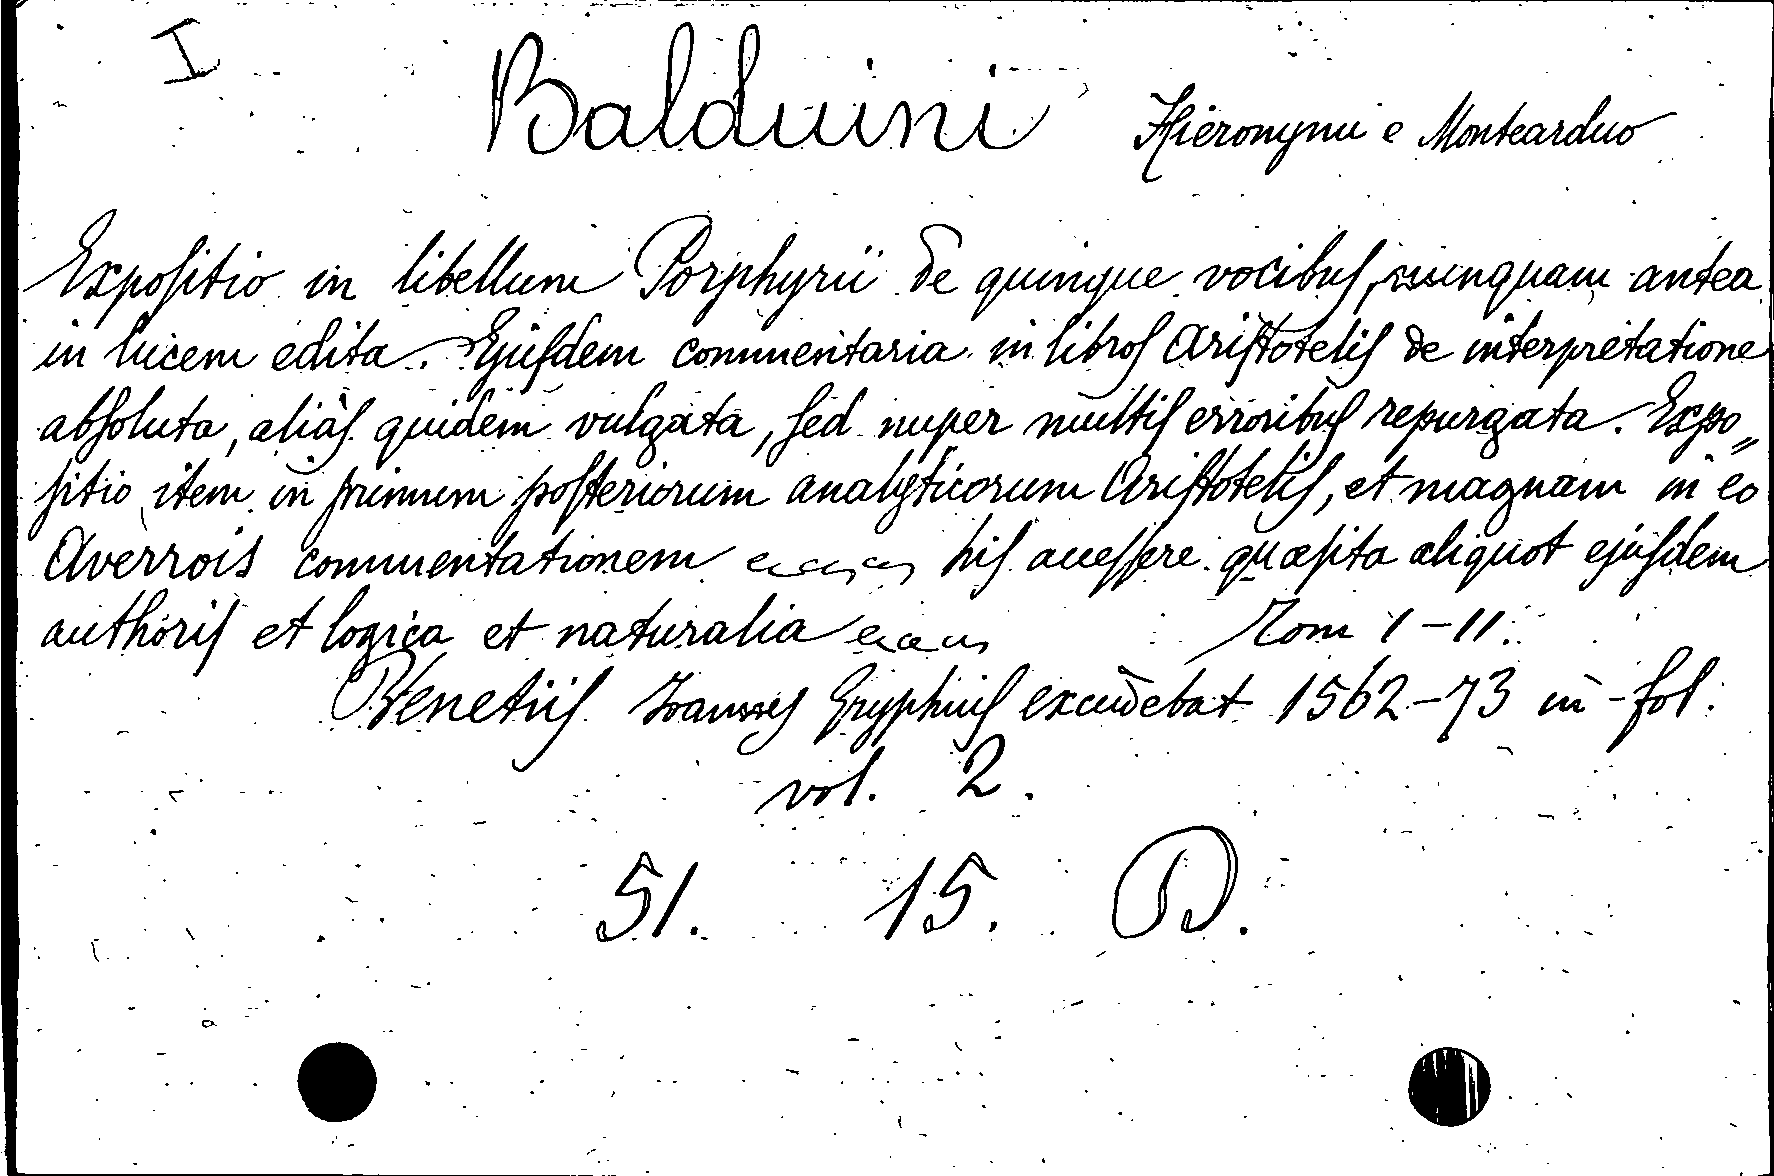 I
Balduini Hieronymi e Montearduo
Expositio in libellum Porphyrii de quinque vocibus, nunquam antea
in lucem edita. Ejusdem commentaria in libros Aristotelis de interpretatione
absoluta, aliàs quidem vulgata, sed nuper multis erroribus repurgata. Expo„
sitio item in primum posteriorum analyticorum Aristotelis, et magnam in eo
Averrois commentationem his accessere quæsita aliquot ejusdem
authoris et logica et naturalia Tom 1-11.
Venetiis Joannes Gryphius excudebat 1562-73 in-fol.
vol. 2.
51. 15. D.